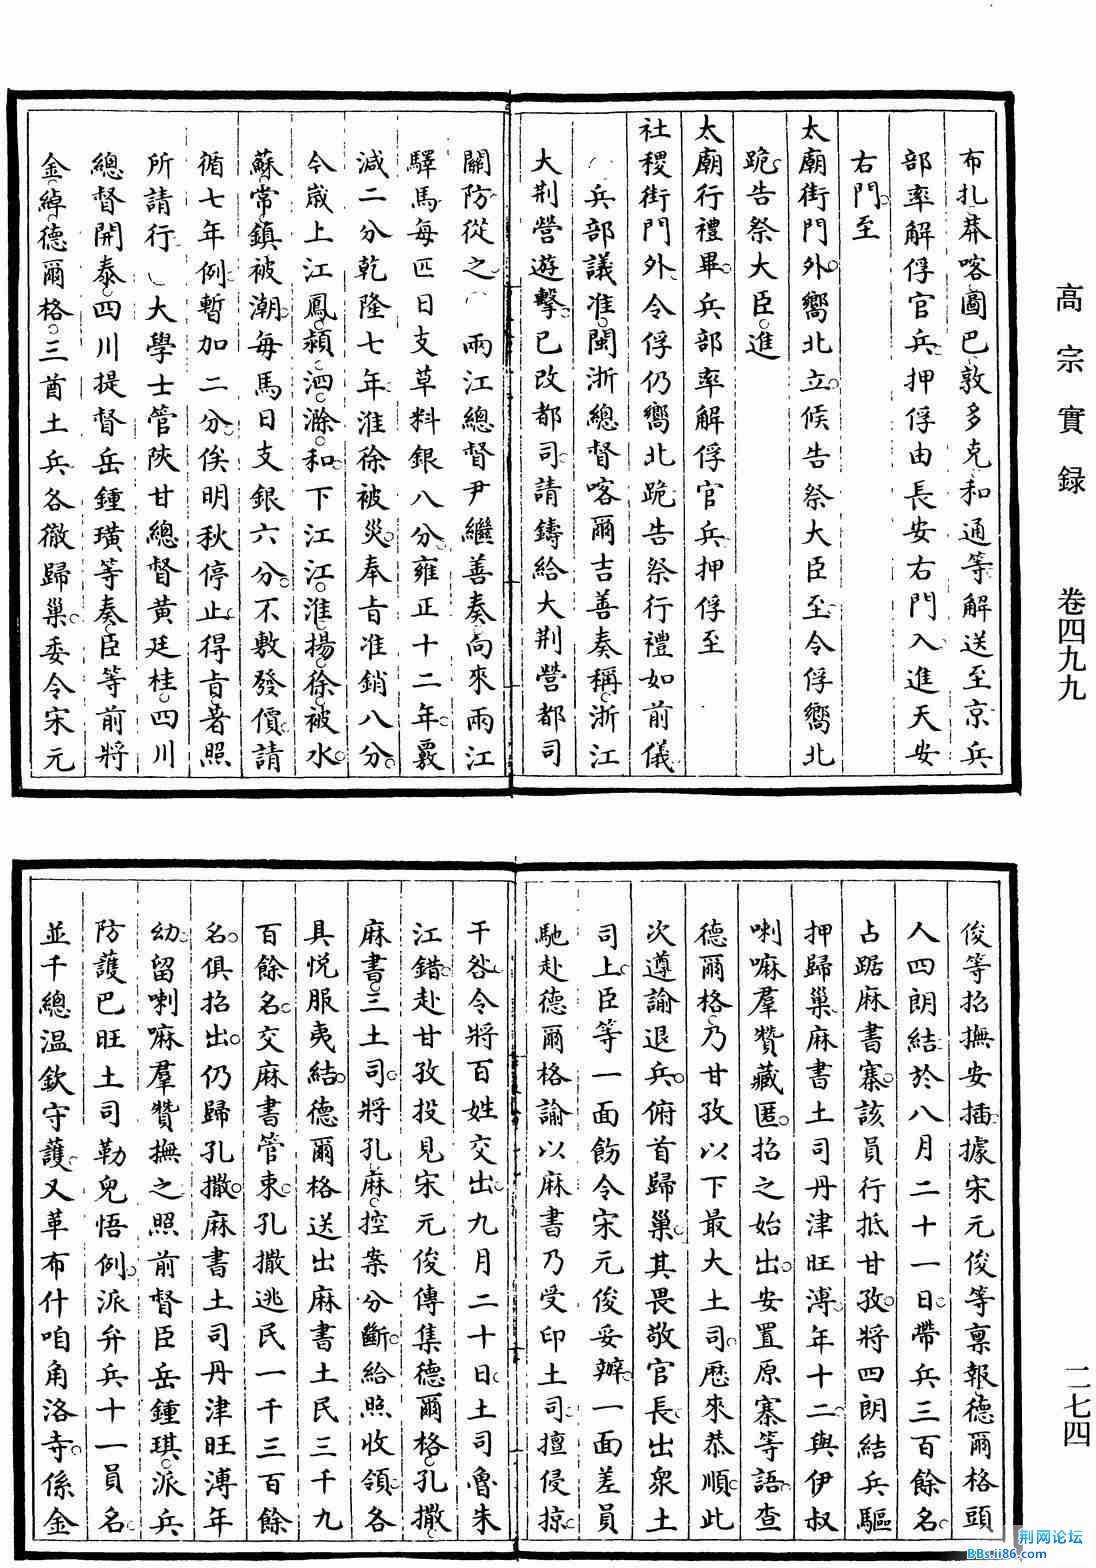 高宗實録　卷四九九
布扎莽喀圖巴敦多克和通等解送至京兵
部率解俘官兵押俘由長安右門入進天安
右門至
太廟街門外嚮北立候告祭大臣至令俘嚮北
跪告祭大臣進
太廟行禮畢兵部率解俘官兵押俘至
社稷街門外令俘仍嚮北跪告祭行禮如前儀
兵部議准閩浙總督喀爾吉善奏稱浙江
大荆營遊擊已改都司請鑄給大荆營都司
關防從之　兩江總督尹繼善奏向來兩江
驛馬每匹日支草料銀八分雍正十二年覈
減二分乾隆七年淮徐被災奉旨准銷八分
今歲上江鳳潁泗滁和下江江淮揚徐被水
蘇常鎮被潮每馬日支銀六分不敷發價請
循七年例暫加二分俟明秋停止得旨著照
所請行　大學士管陝甘總督黃廷桂四川
總督開泰四川提督岳鍾璜等奏臣等前將
金綽德爾格三酋土兵各徹歸巢委令宋元
俊等招撫安插據宋元俊等稟報德爾格頭
人四朗結於八月二十一日帶兵三百餘名
占踞麻書寨該員行抵甘孜將四朗結兵驅
押歸巢麻書土司丹津旺溥年十二與伊叔
喇嘛羣贊藏匿招之始出安置原寨等語查
德爾格乃甘孜以下最大土司歷來恭順此
次遵諭退兵俯首歸巢其畏敬官長出衆土
司上臣等一面飭令宋元俊妥辦一面差員
馳赴德爾格諭以麻書乃受印土司擅侵掠
干咎令將百姓交出九月二十日土司魯朱
江錯赴甘孜投見宋元俊傳集德爾格孔撒
麻書三土司將孔麻控案分斷給照收領各
具悅服夷結德爾格送出麻書土民三千九
百餘名交麻書管束孔撒逃民一千三百餘
名俱招出仍歸孔撒麻書土司丹津旺溥年
幼留喇嘛羣贊撫之照前督臣岳鍾琪派兵
防護巴旺土司勒兒悟例派弁兵十一員名
並千總溫欽守護又革布什咱角洛寺係金
二七四
荆网论坛
BBs.ii86.com